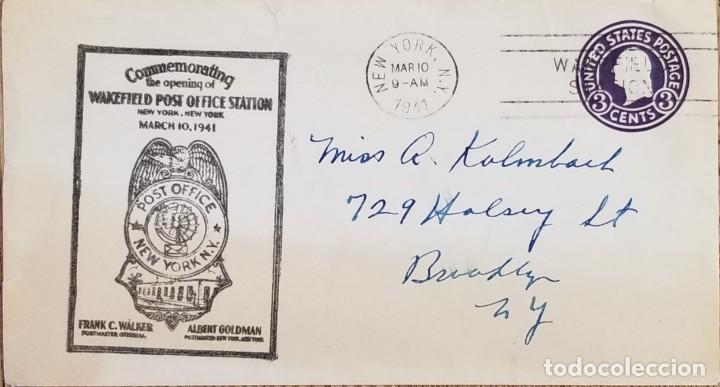 Commemorating
the opening of
WAKEFIELD POST OFFICE STATION
NEW YORK, NEW YORK
MARCH 10, 1941
POST OFFICE
NEW YORK N.Y.
FRANK C. WALKER
POSTMASTER GENERAL
ALBERT GOLDMAN
POSTMASTER NEW YORK, NEW YORK
NEW YORK, N.Y.
MAR 10
9-AM
1941
WAKEFIELD
STATION
UNITED STATES POSTAGE
3 CENTS 3
Miss A. Kolmbach
729 Halsey St
Brooklyn
NY
todocoleccion